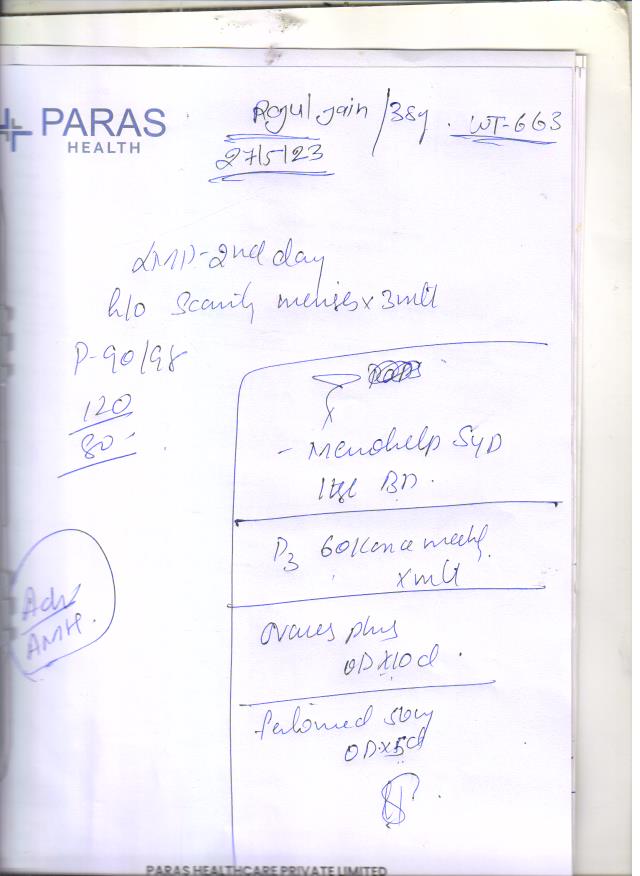 PARAS
HEALTH
Rajul Jain / 38y. WT-663
27/5/23
LMP-2nd day
h/o Scanty menses x 3 mth
P-90/98
120
80
- Menohelp Syp
1tsf BD.
D3 60K once weekly
x mth
Adv
AMH.
Ovares plus
OD x 10d.
OD x 5d
PARAS HEALTHCARE PRIVATE LIMITED